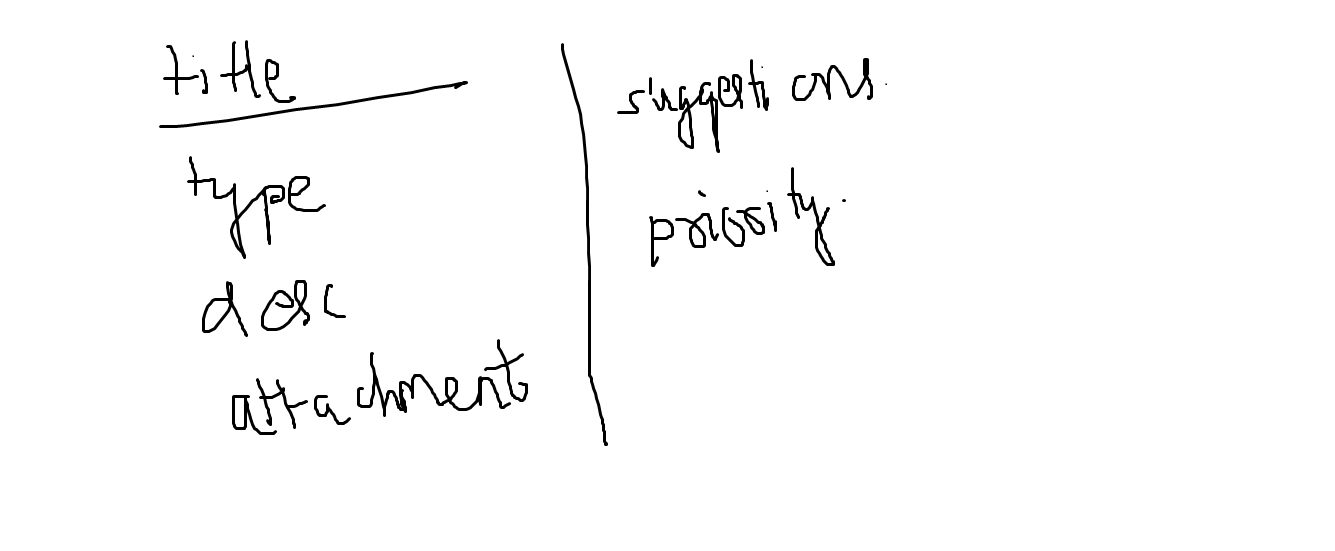 title
type
desc
attachment
suggestions
priority.